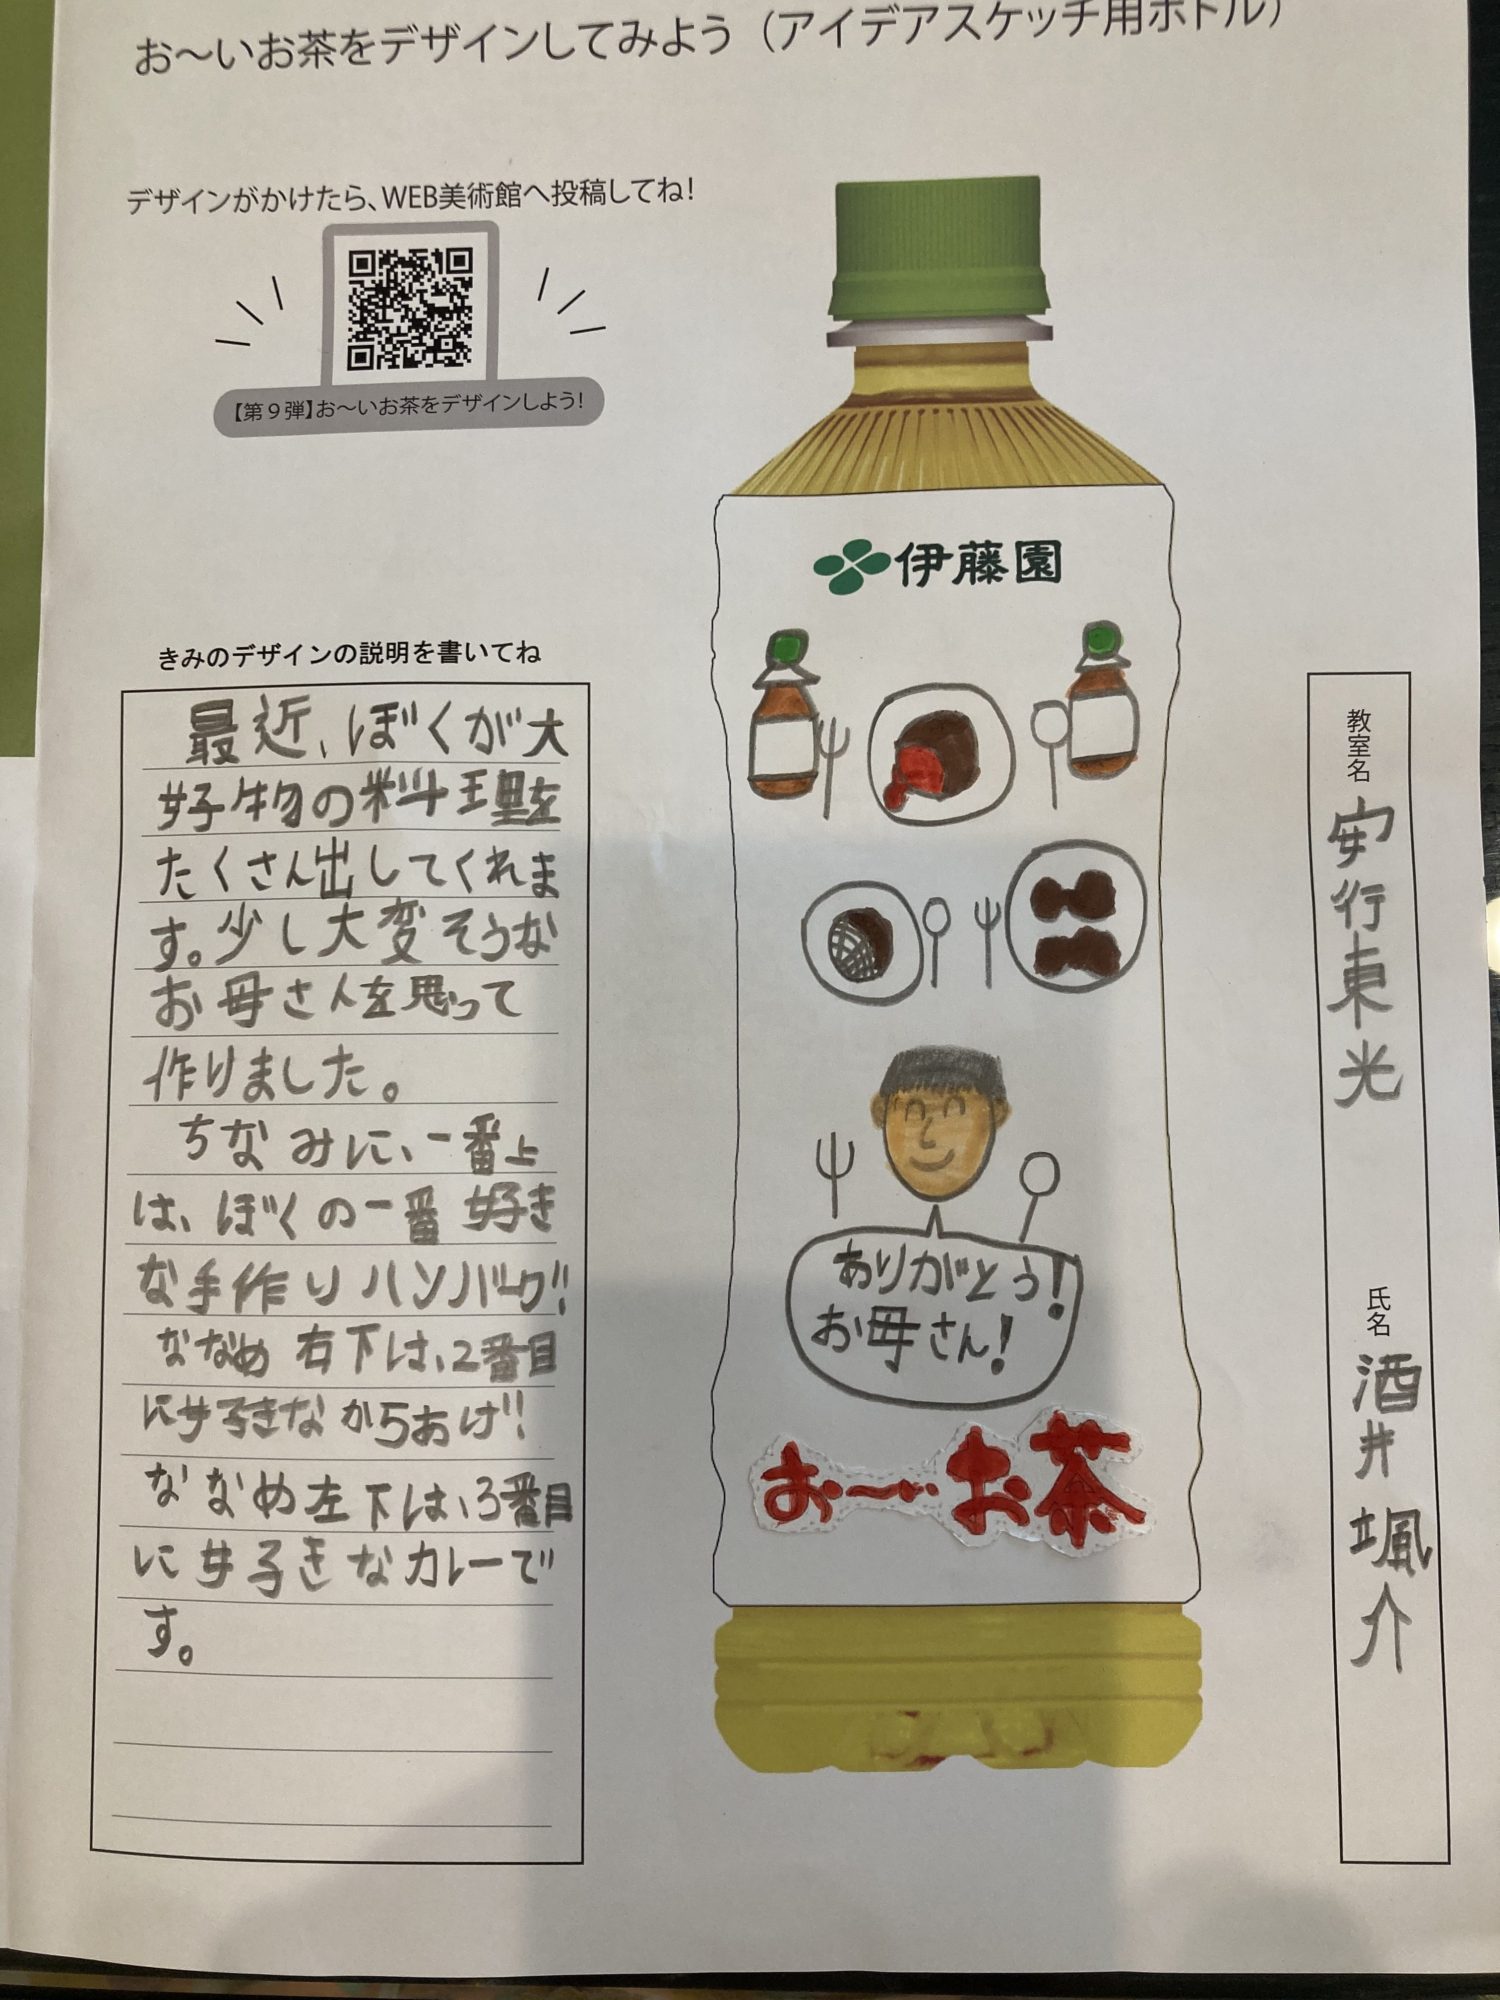 お～いお茶をデザインしてみよう（アイデアスケッチ用ボトル）
デザインがかけたら、WEB美術館へ投稿してね！
【第９弾】お～いお茶をデザインしよう！
きみのデザインの説明を書いてね
最近、ぼくが大
好物の料理を
たくさん出してくれま
す。少し大変そうな
お母さんを思って
作りました。
ちなみに、一番上
は、ぼくの一番好き
な手作りハンバーグ!!
ななめ右下は、2番目
に好きなからあげ!!
ななめ左下は、3番目
に好きなカレーで
す。
伊藤園
ありがとう!
お母さん!
お～いお茶
教室名
安行東光
氏名
酒井颯介